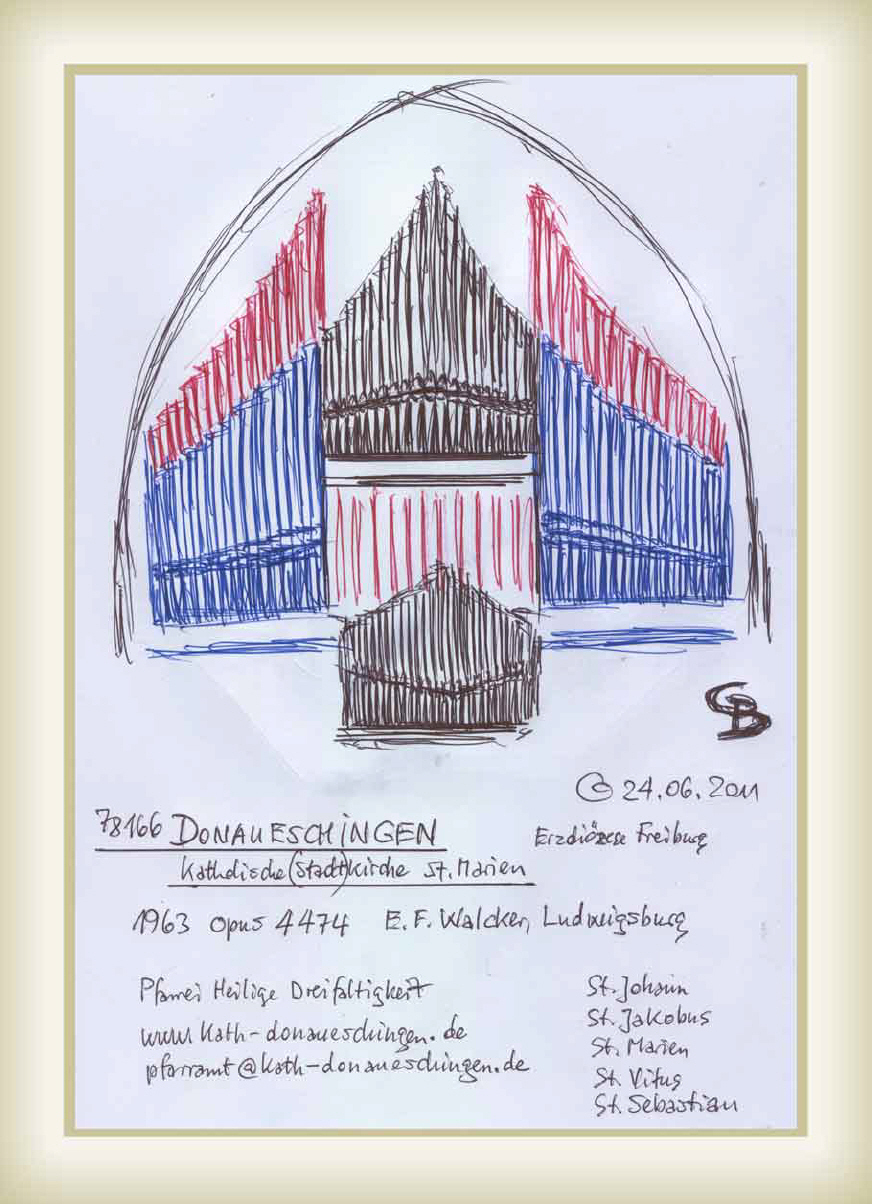 CB
© 24.06.2011
78166 DONAUESCHINGEN
Erzdiözese Freiburg
Katholische (Stadt)kirche St. Marien
1963 opus 4474 E. F. Walcker, Ludwigsburg
Pfarrei Heilige Dreifaltigkeit
www.kath-donaueschingen.de
pfarramt@kath-donaueschingen.de
St. Johann
St. Jakobus
St. Marien
St. Vitus
St. Sebastian